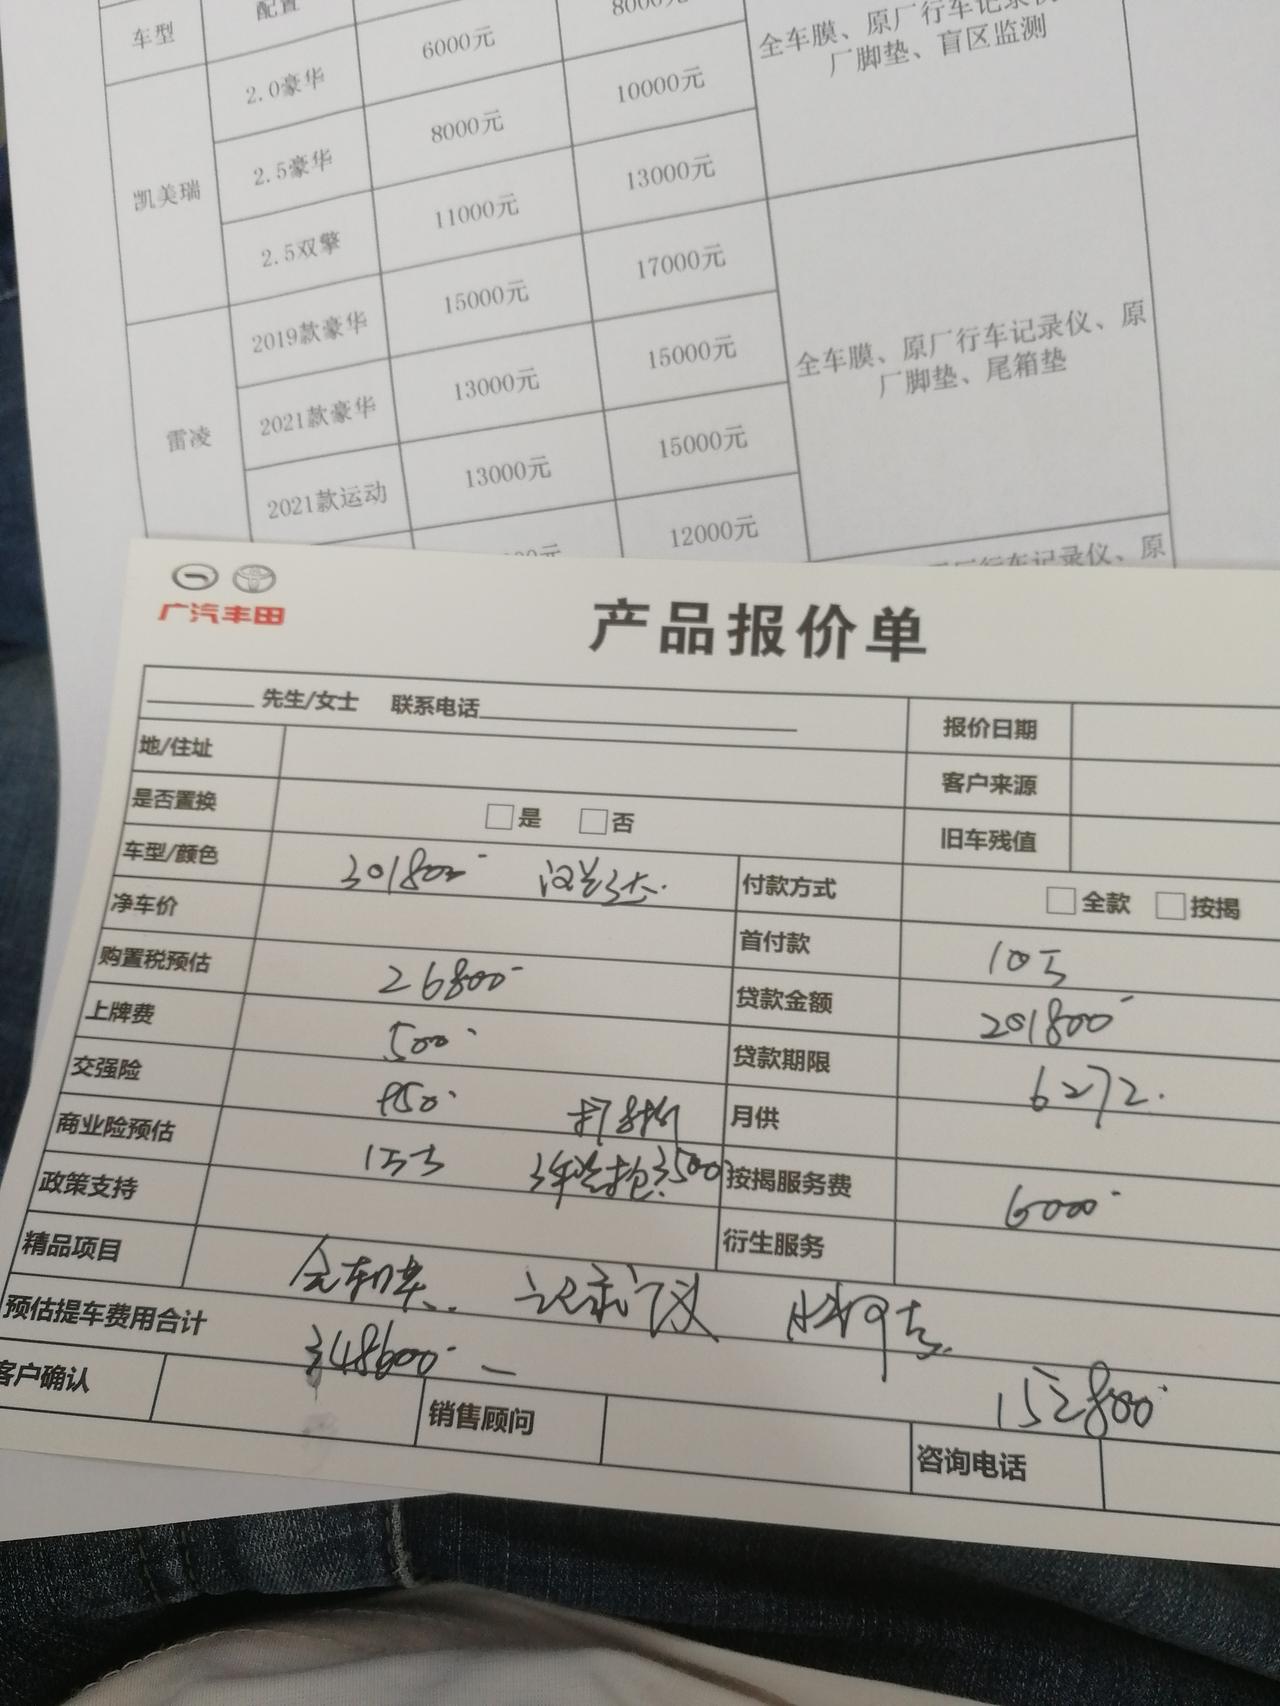 车型 配置 6000元 8000元 全车膜、原厂行车记录仪
厂脚垫、盲区监测
凯美瑞 2.0豪华 8000元 10000元
2.5豪华 11000元 13000元
2.5双擎 15000元 17000元
雷凌 2019款豪华 13000元 15000元 全车膜、原厂行车记录仪、原
厂脚垫、尾箱垫
2021款豪华 13000元 15000元
2021款运动 12000元
厂行车记录仪、原
广汽丰田
产品报价单
先生/女士 联系电话 报价日期
地/住址 客户来源
是否置换 是 否 旧车残值
车型/颜色 301800 汉兰达 付款方式 全款 按揭
净车价 首付款 10万
购置税预估 26800 贷款金额 201800
上牌费 500 贷款期限 6272
交强险 950 月供
商业险预估 1万 3年 3500 按揭服务费 6000
政策支持 衍生服务
精品项目 全车膜 记录仪 脚垫
预估提车费用合计 348600 152800
客户确认 销售顾问 咨询电话